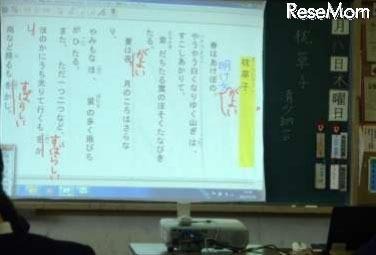 ReseMom
月八日木曜日
枕草子
清少納言
枕草子
春はあけぼの。
明け
がよい
やうやう白くなりゆく山ぎは、
すこしあかりて、
紫だちたる雲のほそくたなびき
たる。
夏は夜。月のころはさらな
がよい
り、
やみもなほ、蛍の多く飛びち
がひたる。
また、ただ一つ二つなど、
ほのかにうち光りて行くもをか
すばらしい
し。
雨など降るもをかし。
すばらしい